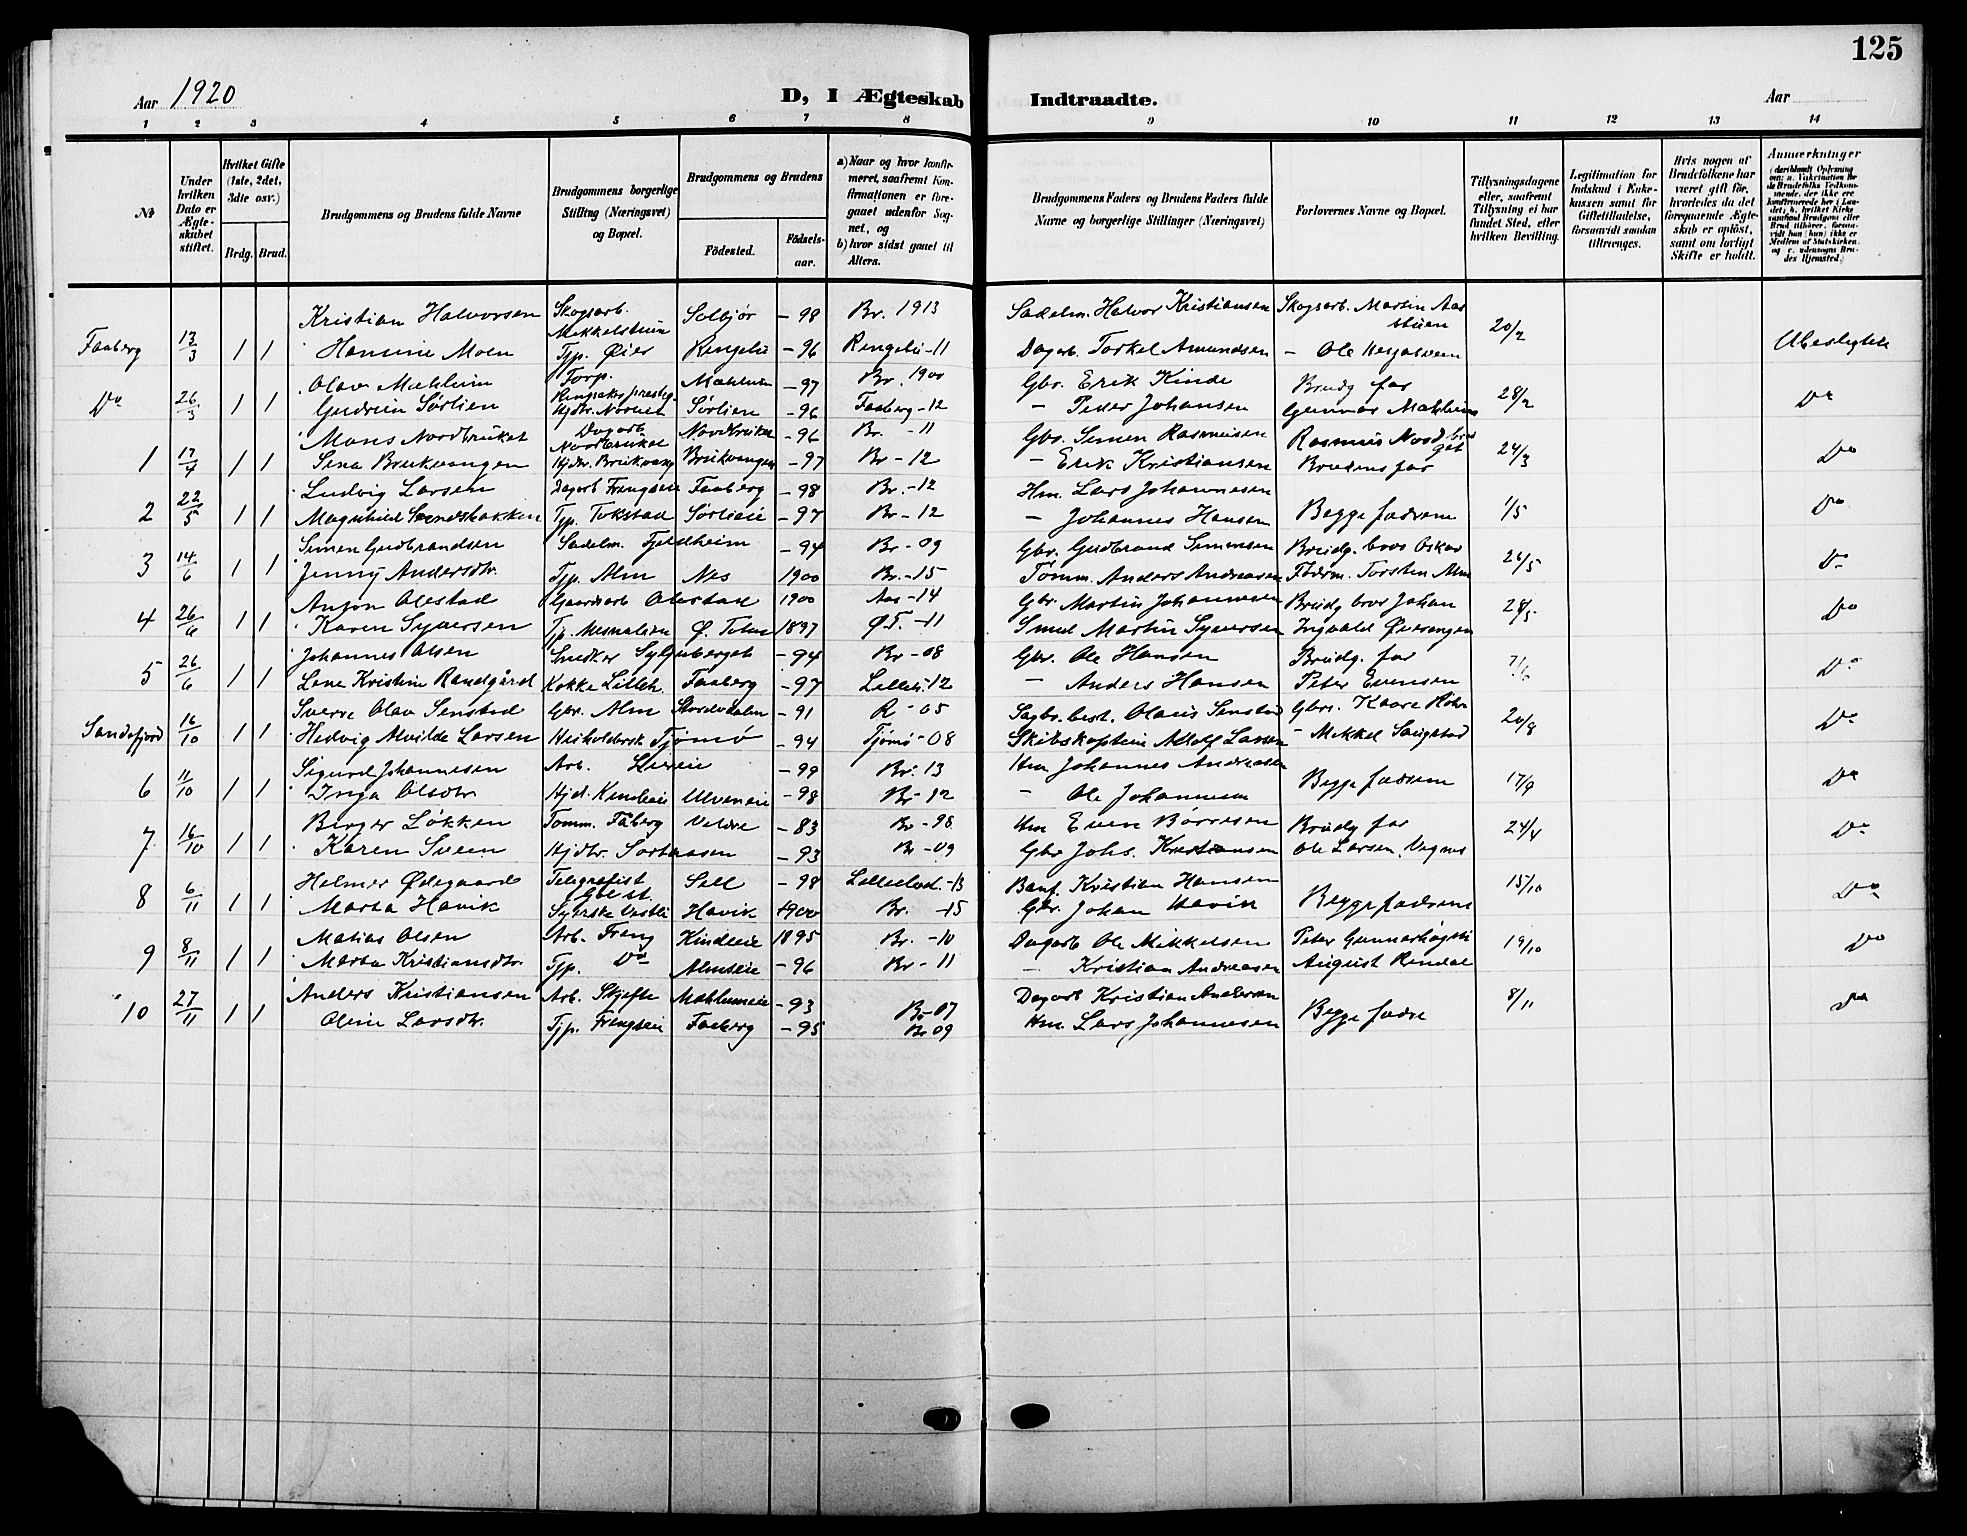 125
Aar 1920 D, I Ægteskab Indtraadte. Aar
1 2 3 4 5 6 7 8 9 10 11 12 13 14
№ Under hvilken Dato er Ægteskabet stiftet. Hvilket Gifte (1ste, 2det, 3die osv.) Brdg. Brud. Brudgommens og Brudens fulde Navne Brudgommens borgerlige Stilling (Næringsvei) og Bopæl. Brudgommens og Brudens Fødested. Fødselsaar. a) Naar og hvor konfirmeret, saafremt Konfirmationen er foregaaet udenfor Sognet, og b) hvor sidst gaaet til Alters.
Brudgommens Faders og Brudens Faders fulde Navne og borgerlige Stillinger (Næringsvei) Forlovernes Navne og Bopæl. Tillysningsdagene eller, saafremt Tillysning ei har fundet Sted, efter hvilken Bevilling. Legitimation for Indskud i Enkekassen samt for Giftetilladelse, forsaavidt saadan tiltrænges. Hvis nogen af Brudefolkene har været gift før, hvorledes da det foregaaende Ægteskab er opløst, samt om lovligt Skifte er holdt. Anmærkninger
Kristian Halvorsen Skogsarb. Solbjør - 98 Br. 1913 Sadelm. Halvor Kristiansen Skogsarb. Martin Aasstuen
Faaberg 13/3 1 1 Hansine Moen Tjp. Øier Ringeli - 96 Ringeli - 11 Dagarb. Torkel Amundsen - Ole 20/2 Ubeslægtede
Olav Mæhlum Mæhlum - 97 Br. 1900 Gbr. Erik Kinde Brudg far
Do 26/3 1 1 Gudrun Sørlien Sørlien - 96 Faaberg - 12 - Peder Johansen Gunnar Mæhlum 28/2 Do
Mons Nordbruket Dagarb Nordbruket Nordbruket - 96 Br. - 11 Gbr. Simen Rasmusen Rasmus Nordbruket
1 17/4 1 1 Sina Brukvangen Hjdtr. Brukvang Brukvangen - 97 Br - 12 - Erik Kristiansen Brudens far 24/3 Do
Ludvig Larsen Dagarb Frengseie Faaberg - 98 Br. - 12 Hm. Lars Johannesen
2 22/5 1 1 Magnhild Svendsbakken Tjp. Tokstad Sørlieie - 97 Br - 12 - Johannes Hansen Begge fædrene 1/5 Do
Simen Gudbrandsen Sadelm. Fjeldheim - 94 Br - 09 Gbr. Gudbrand Simensen Brudg. bror Oskar
3 14/6 1 1 Jenny Andersdtr. Tjp. Alm Nes 1900 Br. - 15 Tømm. Anders Andreasen Torsten Alm 26/5 Do
Anton Olestad Gaardsarb Olestad 1900 Aas - 14 Gbr. Martin Johannesen Brudg bror Johan
4 26/6 1 1 Karen Syversen Tjp. Mesnalien Ø. Toten 1897 Ø.T. - 11 Smed Martin Syversen Ingvald Øvervangen 28/5 Do
Johannes Olsen Snedker Syljuberget - 94 Br - 08 Gbr. Ole Hansen Brudg. far
5 26/6 1 1 Lene Kristine Randgård Kokke Lilleh. Faaberg - 97 Lilleh. - 12 - Anders Hansen Peter Evensen 7/6 Do
Sverre Olav Senstad Gbr. Alm Storelvdalen - 91 R - 05 Sagbr. best. Olaus Senstad Gbr. Kaare
Sandefjord 16/10 1 1 Hedvig Alvilde Larsen Tjømø - 94 Tjømø - 08 Skibskaptein Adolf Larsen - Mikkel Saugstad 20/8 Do
Sigurd Johannesen Arb. Lieeie - 99 Br. 13 Hm Johannes Andreassen
6 11/10 1 1 Inga Olsdtr. Hjd. Kindeeie Ulveneie - 98 Br - 12 - Ole Johannesen Begge fædrene 17/9 Do
Birger Løkken Tømm. Fåberg Veldre - 83 Br - 98 Hm Even Børresen Brudg far
7 16/10 1 1 Karen Sveen Hjdtr. Sortaasen - 93 Br - 09 Gbr Johs. Kristiansen Ole Larsen, Vignes 24/4 Do
Helmer Ødegaard Telegrafist Sell - 98 Lillehd. - 13 Banf. Kristian Hansen
8 6/11 1 1 Marta Havik Syerske Vestli Havik 1900 Br. - 15 Gbr. Johan Havik Begge fædrene 15/10 Do
Matias Olsen Arb. Freng Kindeeie 1895 Br. - 10 Dagarb Ole Mikkelsen Peter Gunnarhøgen
9 8/11 1 1 Marta Kristiansdtr. Tjp. Do Almseie - 96 Br - 11 - Kristian Andreasen August Rendal 19/10 Do
Anders Kristiansen Arb. Skjefte Mæhlumeie - 93 Br - 07 Dagarb Kristian Andersen
10 27/11 1 1 Oline Larsdtr. Tjp. Frengseie Faaberg - 95 Br 09 Hm. Lars Johannesen Begge fædre 8/11 Do